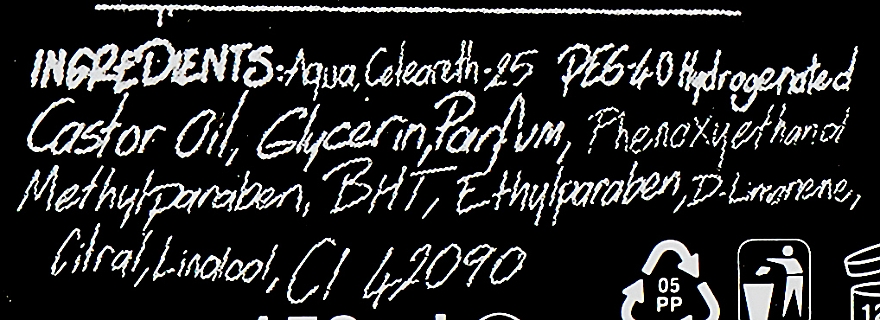 INGREDIENTS: Aqua, Ceteareth-25 PEG-40 Hydrogenated
Castor Oil, Glycerin, Parfum, Phenoxyethanol
Methylparaben, BHT, Ethylparaben, D-Limonene,
Citral, Linalool, CI 42090
05
PP
12